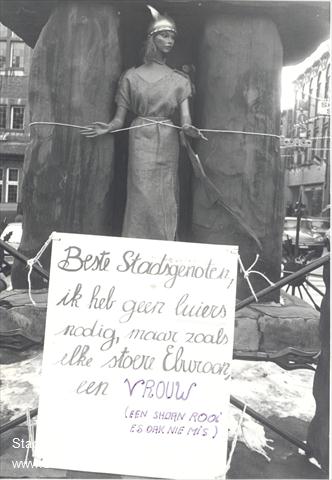 Beste Stadsgenoten,
ik heb geen luiers
nodig, maar zoals
elke stoere Eburoon,
een VROUW
(EEN SHOAN ROOI
ES OAK NIE MIS.)
Sta
www.